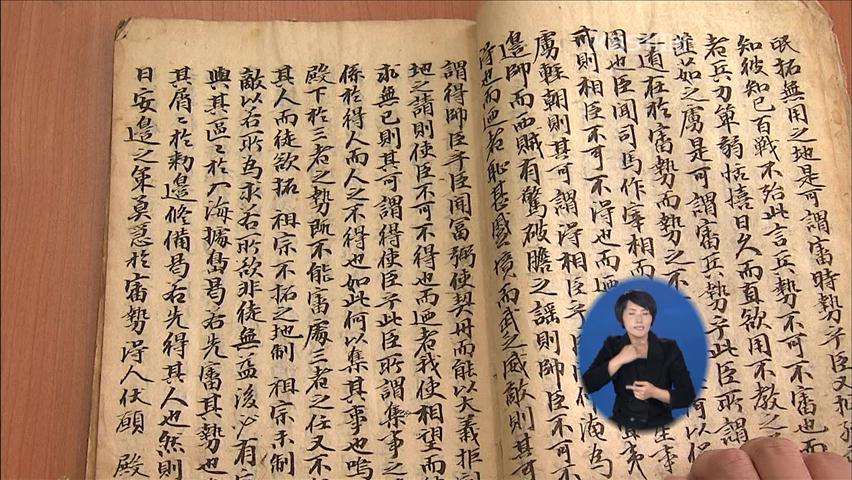 民拓無用之地是可謂審時勢乎臣又
知彼知己百戰不殆此言兵勢不可不審也而
者兵力單弱恬憘日久而直欲用不教之
如之虜是可謂審兵勢乎此臣所謂
道在於審勢而勢之不 可以
國也臣聞司馬作宰相而 生事
或則相臣不可不得也而 為 夷
虜輕朝則其可謂得相臣乎臣
邊師而西賊有驚破膽之謠則師臣不可
得也而迺者恥甚 境而武之威敵則其可
謂得師臣乎臣聞富弼使契丹而能以大義拒
地之請則使臣不可不得也而迺者我使相望而
求無已則其可謂得使臣乎此臣所謂集事之
係於得人而人之不得也如此何以集其事也嗚
殿下於三者之勢所不能審處三者之任又不
其人而徒欲拓 祖宗不拓之地制 祖宗未制
敵以右所為求右所欲非徒無益後必有
與其區〻於入海據島曷右先審其勢也
其屑〻於勑邊修備曷右先得其人也然則
日安邊之策莫急於審勢得人伏願 殿